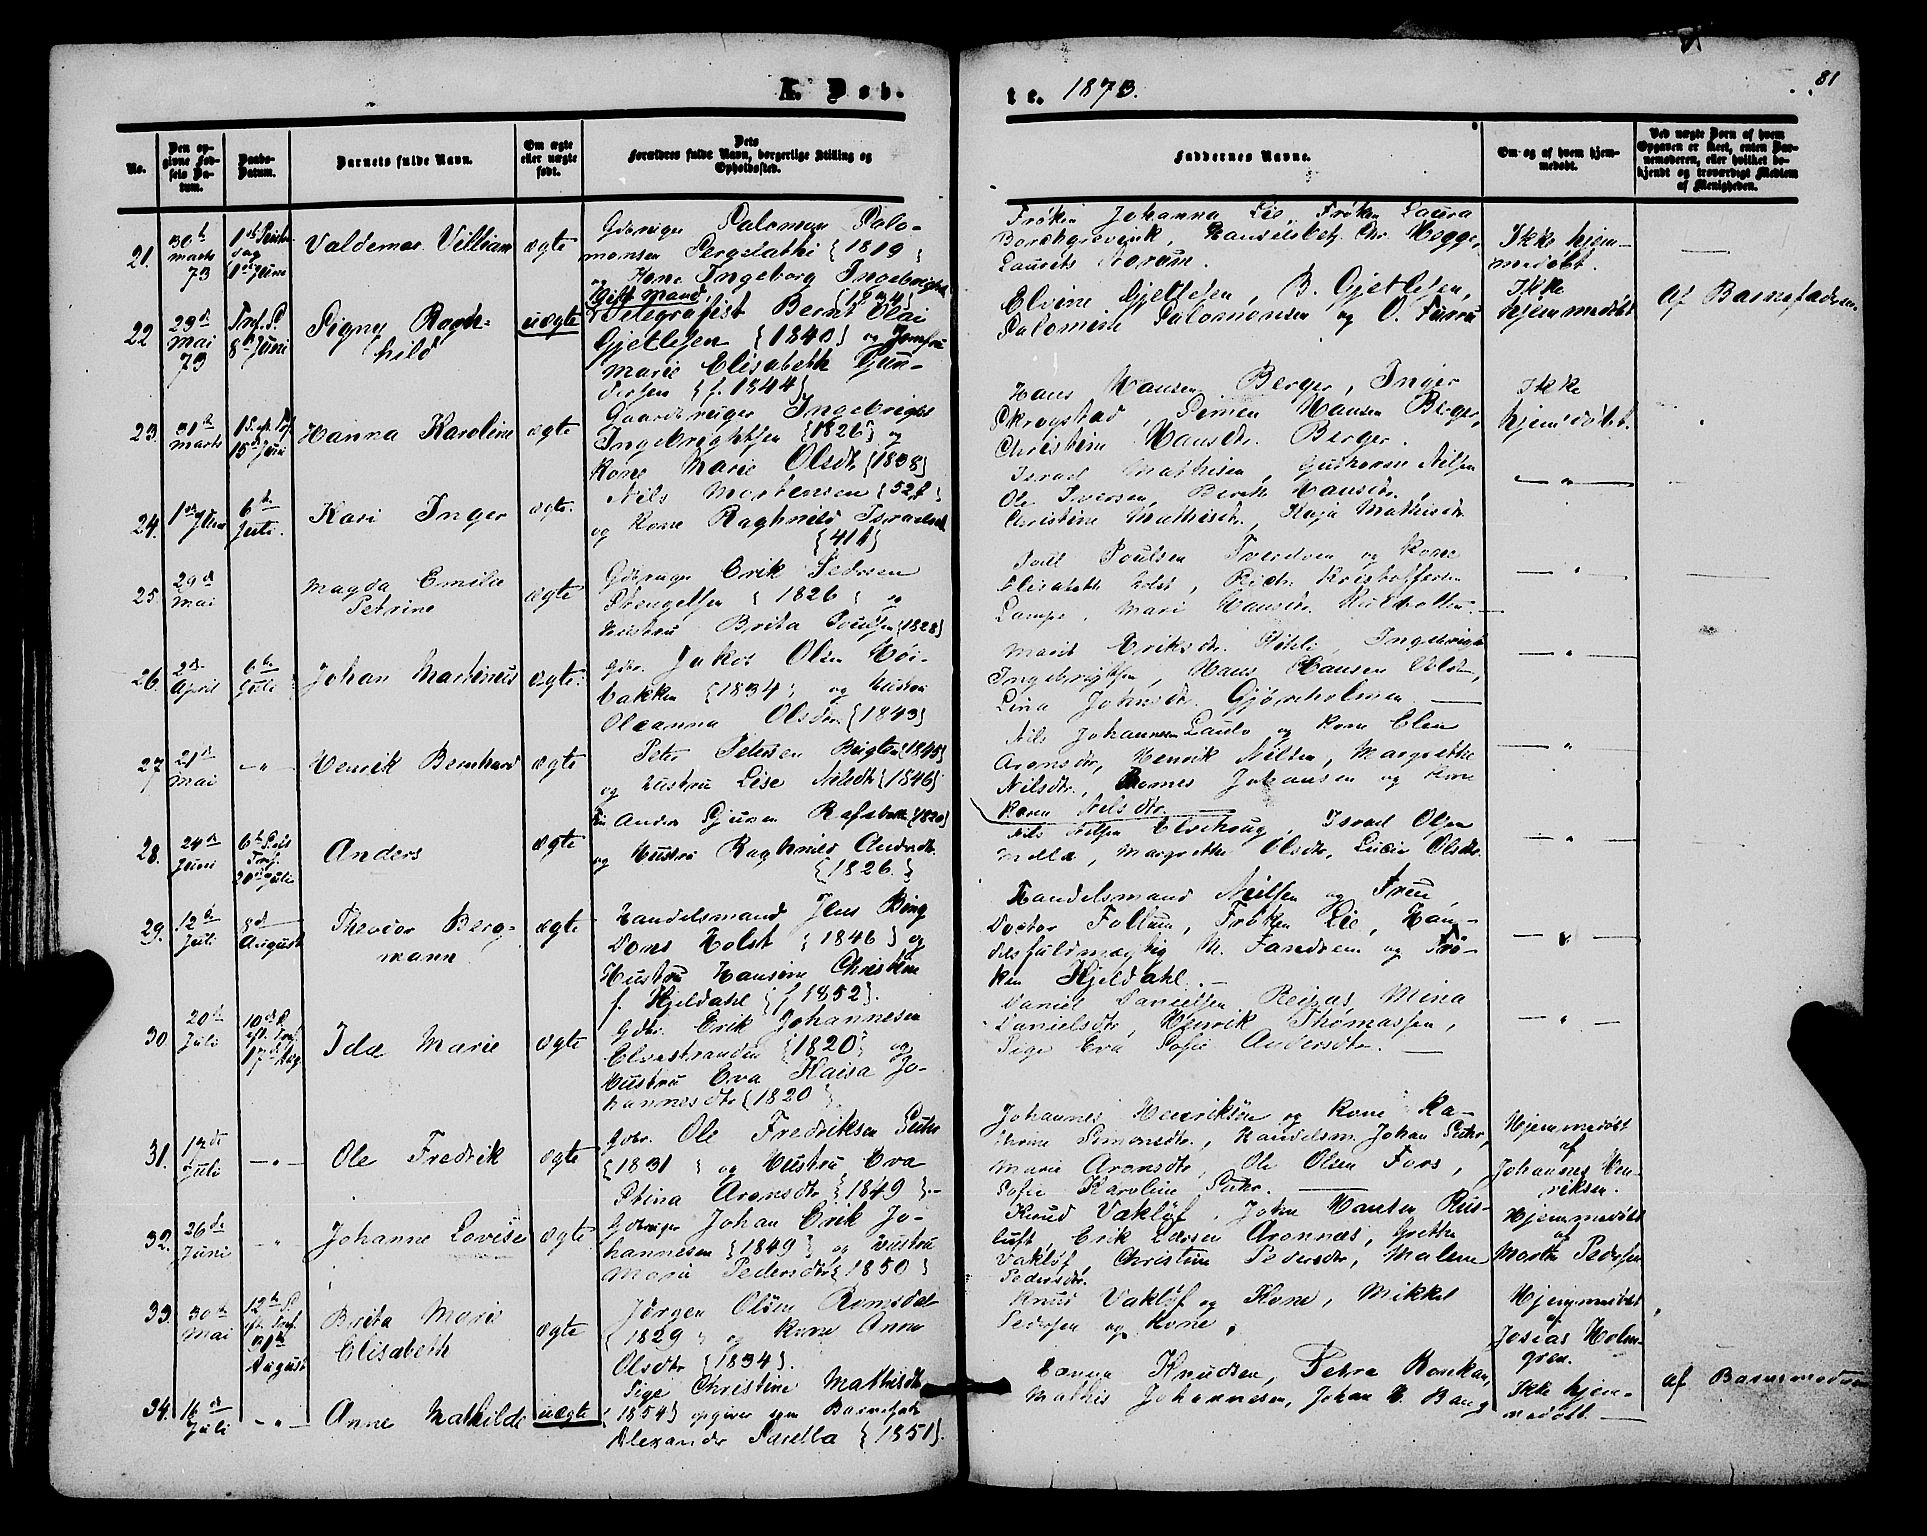 A. Døb-
te. 1873.
81
No.
Den op-
givne Fød-
sels Da-
tum.
Daabs-
Datum.
Barnets fulde Navn.
Om ægte
eller uægte
født.
Dets
Forældres fulde Navn, borgerlige Stilling og
Opholdssted.
Faddernes Navne.
Om og af hvem hjem-
medøbt.
Ved uægte Børn af hvem
Opgaven er skeet, enten Bar-
nemoderen, eller hvilket be-
kjendt og troværdigt Medlem
af Menigheden.
21.
30te
Marts
73
1ste
dag
1ste Juni
Valdemar Villiam
ægte
Salomon Salo-
monsen {1819}
og Kone Ingeborg
{1834}
Frøken Johanna Lie, Frøken Laura
Borchgrevink, Chr. Hegge,
Laurits Norum.
Ikke hjem-
medøbt.
22
29de
Mai
73
Trf. S.
8de Juni
Signy Ragn-
hild
uægte
Gift Mand.
Telegrafist Bernt Olai
Gjetlesen {1840} og Jomfru
Marie Elisabeth Gun-
dersen {f. 1844}
Elvine Gjetlesen, B. Gjetlesen,
Salomine Salomonsen og O. Furru
Ikke
hjemmedøbt
Af Barnefaderen.
23.
31te
Marts
15de Juni
Hanna Karoline
ægte
Ingebrigt
Ingebrightsen {1826} og
Kone Marie Olsdtr {1838}
Hans Hansen Berger, Inger
Skrogstad, Simen Hansen Berger,
Christine Hansdtr. Berger.
Ikke
hjemdøbt.
24.
1ste
6te
Juli.
Kari Inger
ægte.
Nils Mortensen {52}
og Kone Raghnild Israelsd
{41}
Israel Mathisen, Guttorm Nilsen
Ole Iversen, Berit Hansdtr,
Christine Mathisdtr, Kaja Mathisdtr
— " —
25.
29de
Mai
Magda Emilie
Petrine
ægte
Erik Pedersen
Strengelsen {1826} og
Hustru Brita Poulsen {1828}
Poul Poulsen og Kone
Elisabeth Holst, Kristoffersen
Lampe, Mari Hansdtr
— " —
26.
2de
April
6te
Juli
Johan Martinus
ægte.
Gbr. Jakob Olsen
bakken {1834} og Hustru
Oleanna Olsdtr. {1843}
Marit Eriksdtr. Ingebrigt
Ingebrigtsen, Hans Hansen
Lina Johnsdtr. Gjørnholmen —
— " —
27
21de
Mai
— " —
Henrik Bernhard
ægte
Peter Petersen {1845}
og Hustru Lise Nilsdtr {1846}
Nils Johannesen og Kone Elen
Aronsdtr, Henrik Nilsen, Margrethe
Nilsdtr., Johansen og Kone
Karen Nilsdtr. —
— " —
28.
24de
Juni
6te
20de Juli
Anders
ægte
Anders Sjursen {1820}
og Hustru Raghnild Andersdtr.
{1826.}
Nils Nilsen Elvekrug, Israel Olsen
Margrethe Olsdtr, Lucie Olsdtr.
— " —
29.
12te
Juli
3de
August
Theodor Berg-
mann.
ægte
Handelsmand Jens Bing
Dons Holst {1846} og
Hustru Hansine Christine
f. Kjeldahl {f. 1852}.
Handelsmand Nielsen og Frue,
Doctor Foltum, Frøken Lie, Han-
delsfuldmægtig M. og Frø-
ken Kjeldahl. —
— " —
30.
20de
Juli
10de S.
eft. Tref.
17de Aug
Ida Marie
ægte
Gbr. Erik Johannesen
Elvestranden {1820} og
Hustru Eva Kaisa Jo-
hannesdtr {1820}
Daniel Danielsen Reinas, Mina
Danielsdtr, Henrik Thomassen,
Pige Eva Sofie Andersdtr. —
— " —
31.
17de
Juli
— " —
Ole Fredrik
ægte
Gbr. Ole Fredriksen Suhr
{1831} og Hustru Eva
Stina Aronsdtr {1849}.
Johannes Henriksen og Kone Ka-
thrine Simonsdtr., Handelsm. Johan Suhr,
Marie Aronsdtr, Ole Olsen Fors,
Sofie Karoline Suhr. —
Hjemmedøbt
af
Johannes Hen-
riksen.
32.
26de
Juni
— " —
Johanne Lovise
ægte.
Johan Erik Jo-
hannesen {1849} og Hustru
Marie Pedersdtr {1850}
Knud Vakløf, John Hansen Rus-
luft, Erik Larsen Aronnæs, Grethe
Vakløf, Christine Pedersdtr, Malene
Pedersdtr.
Hjemmedøbt
af
Marthe Pedersen
33.
30te
Mai
12te S.
eft. Tref.
31te
August
Brita Marie
Elisabeth
ægte
Jørgen Olsen
{1829} og Kone Anne
Olsdtr {1834}.
Knud Vakløf og Kone, Mikkel
Pedersen og Kone,
Hjemmedøbt
af
Josias Holm-
gren.
34.
16de
Juli
— " —
Anne Mathilde
uægte
Pige Christine Mathisdtr
{1854} opgiver som Barnefader
Alexander {1851}.
Knudsen, Petra
Mathis Johannesen, Johan Bang
Ikke hjem-
medøbt. —
af Barnemoderen